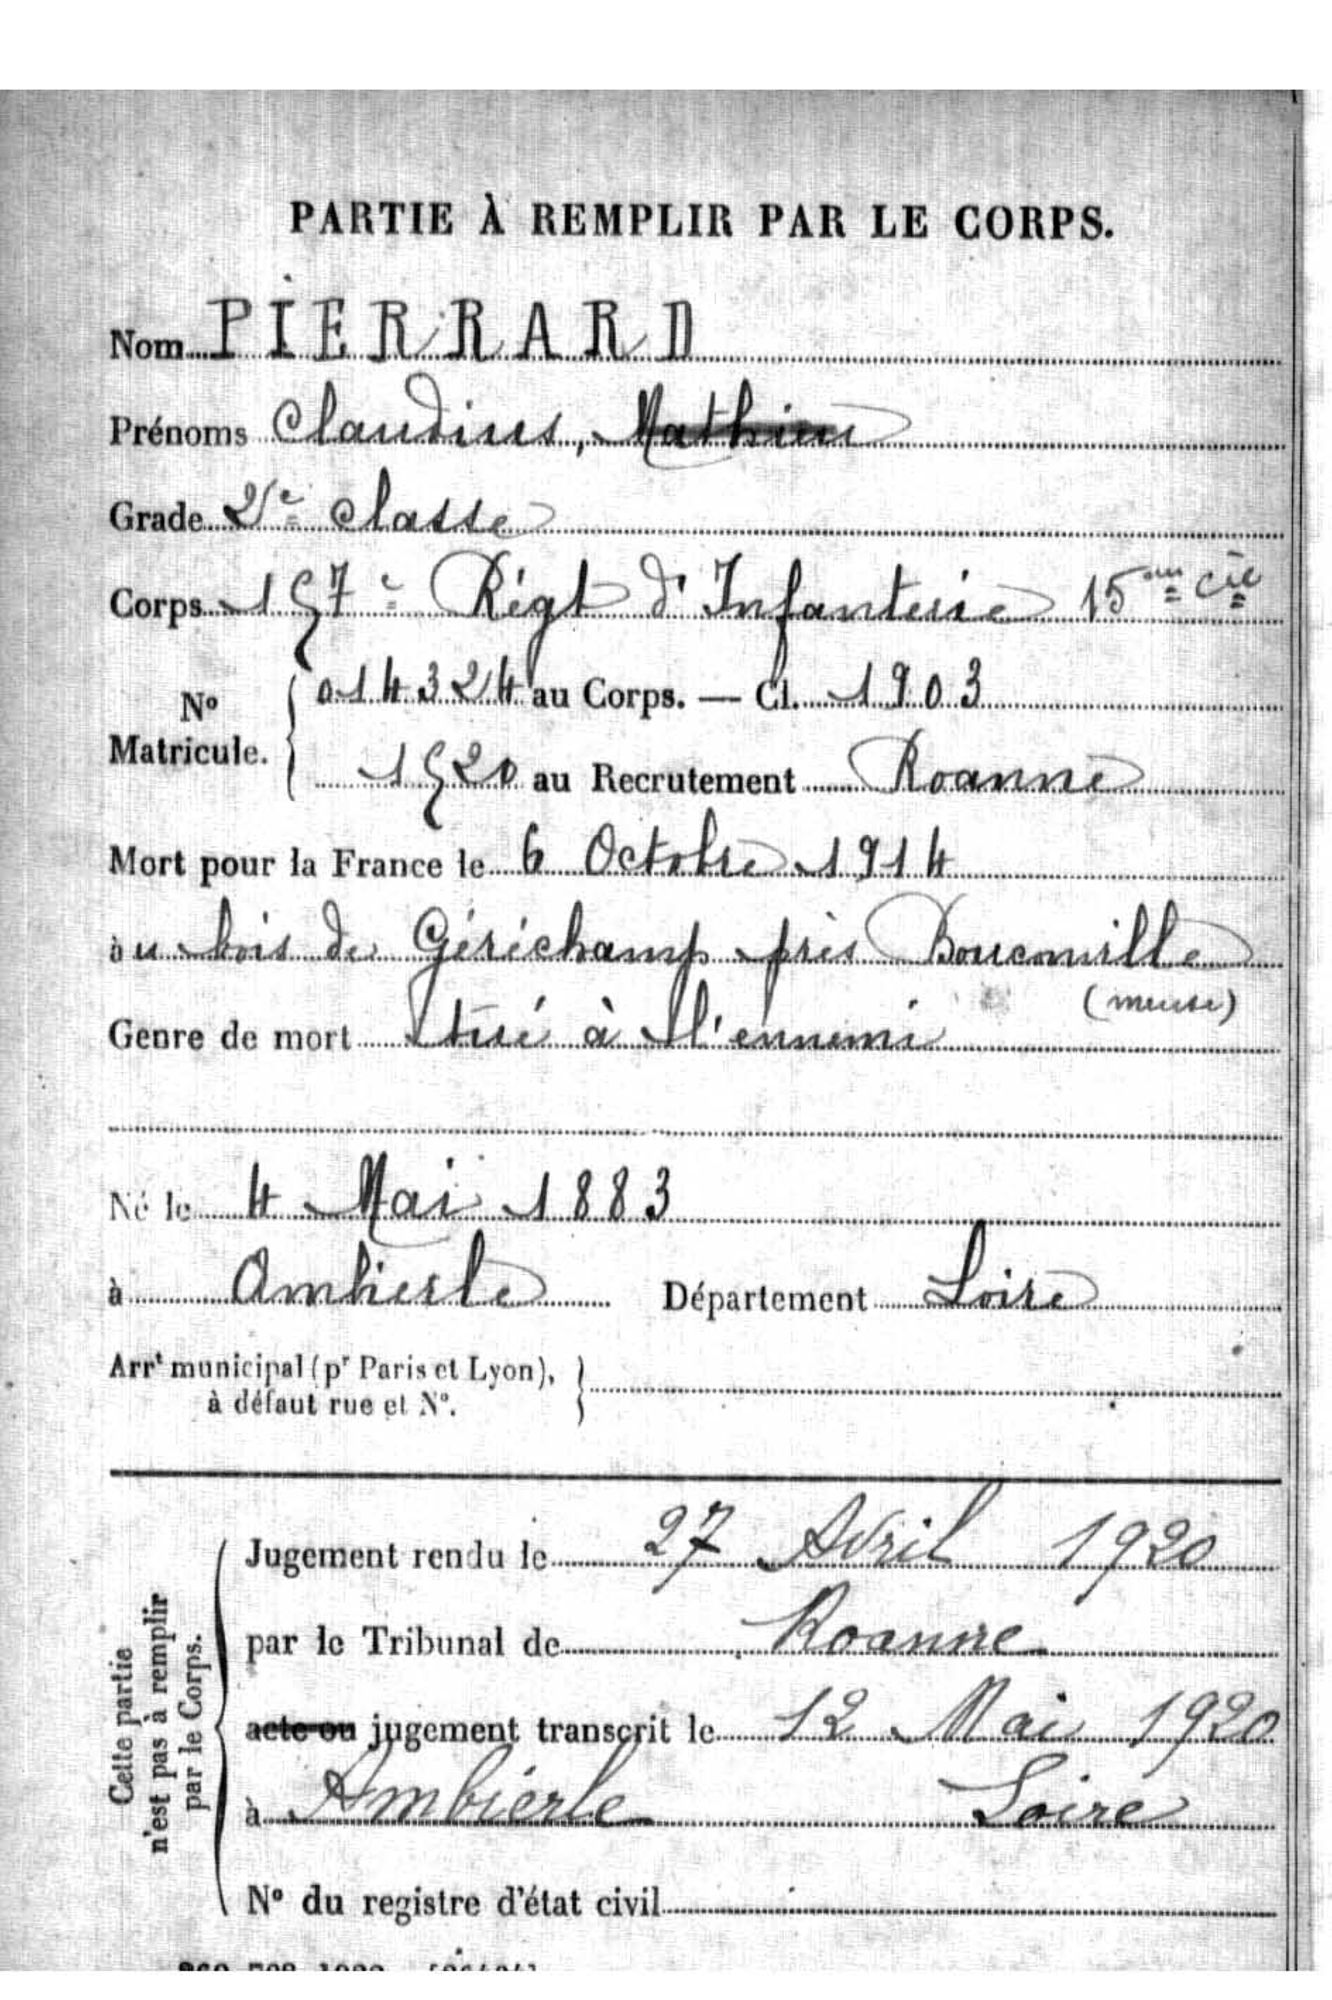 PARTIE À REMPLIR PAR LE CORPS.
Nom PIERRARD
Prénoms Claudius, Mathieu
Grade 2e classe
Corps 157e Régt d'Infanterie 15me Cie
No Matricule. 014324 au Corps. — Cl. 1903
1520 au Recrutement Roanne
Mort pour la France le 6 Octobre 1914
au bois de Géréchamp près Bouconville
(meuse)
Genre de mort tué à l'ennemi
Né le 4 Mai 1883
à Ambierle Département Loire
Arrt municipal (pr Paris et Lyon),
à défaut rue et No.
Cette partie
n'est pas à remplir
par le Corps.
Jugement rendu le 27 Avril 1920
par le Tribunal de Roanne
acte ou jugement transcrit le 12 Mai 1920
à Ambierle Loire
No du registre d'état civil